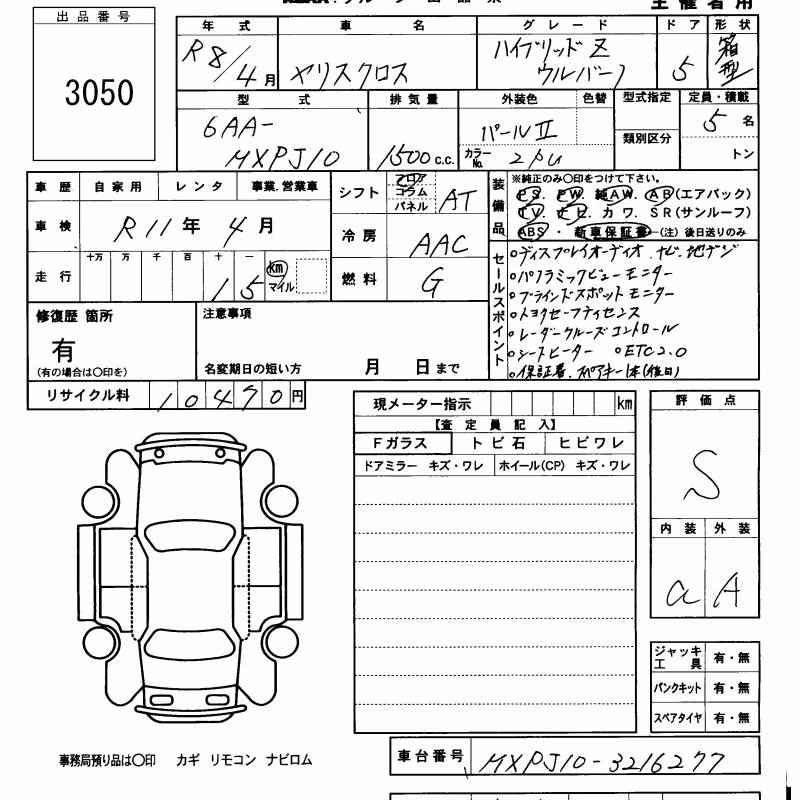 出品番号
3050
主催者用
年式 車名 グレード ドア 形状
R8/4月 ヤリスクロス ハイブリッドZ 5 箱型
ウルバーノ
型式 排気量 外装色 色替 型式指定 定員・積載
6AA-
MXPJ10 1500c.c. パールⅡ 類別区分 5名
カラーNo. 2PU トン
車歴 自家用 レンタ 事業.営業車
車検 R11年4月
走行 十万 万 千 百 十 一 km
15 マイル
シフト フロア コラム パネル AT
冷房 AAC
燃料 G
装備品
※純正のみ〇印をつけて下さい。
PS. PW. 純AW. AB(エアバック)
TV. ナビ. カワ. SR(サンルーフ)
ABS ・ 新車保証書 (注)後日送りのみ
セールスポイント
○ディスプレイオーディオ.ナビ.地デジ
○パノラミックビューモニター
○ブラインドスポットモニター
○トヨタセーフティセンス
○レーダークルーズコントロール
○シートヒーター ○ETC2.0
○保証書.スペアキー1本(後日)
修復歴 箇所
有
(有の場合は〇印を)
注意事項
名変期日の短い方 月 日まで
リサイクル料 10470円
現メーター指示 km
【査定員記入】
Fガラス トビ石 ヒビワレ
ドアミラー キズ・ワレ ホイール(CP) キズ・ワレ
評価点
S
内装 外装
a A
ジャッキ工具 有・無
パンクキット 有・無
スペアタイヤ 有・無
事務局預り品は〇印 カギ リモコン ナビロム
車台番号 MXPJ10-3216277